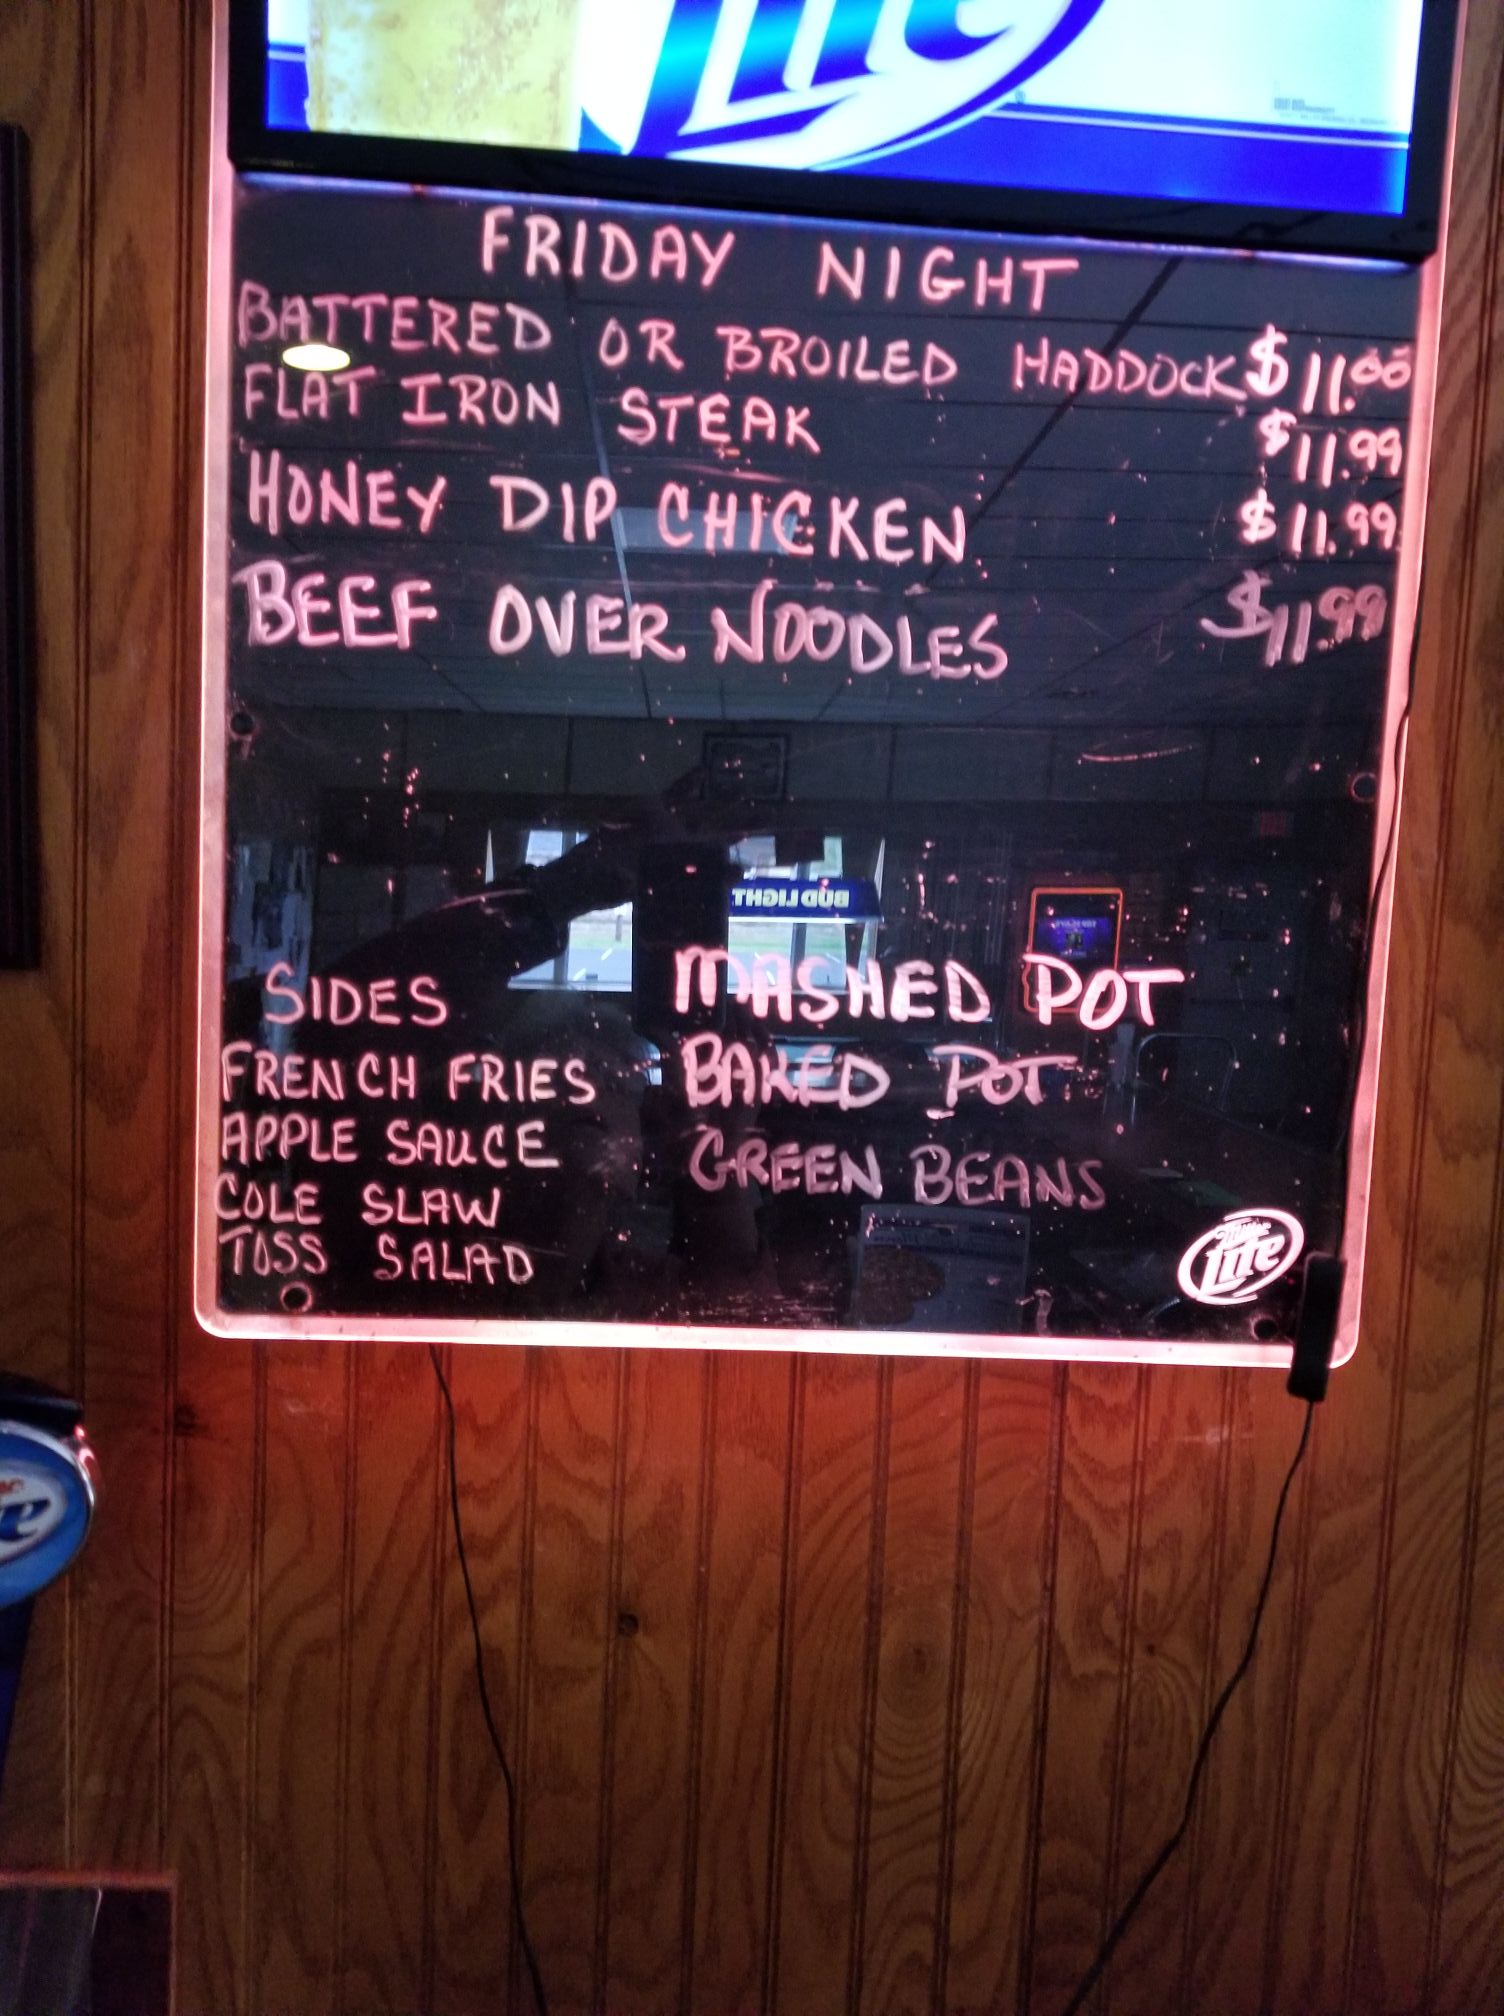 Lite
FRIDAY NIGHT
BATTERED OR BROILED HADDOCK $11.00
FLAT IRON STEAK $11.99
HONEY DIP CHICKEN $11.99
BEEF OVER NOODLES $11.99
BUD LIGHT
SIDES
FRENCH FRIES
APPLE SAUCE
COLE SLAW
TOSS SALAD
MASHED POT
BAKED POT
GREEN BEANS
Miller
Lite